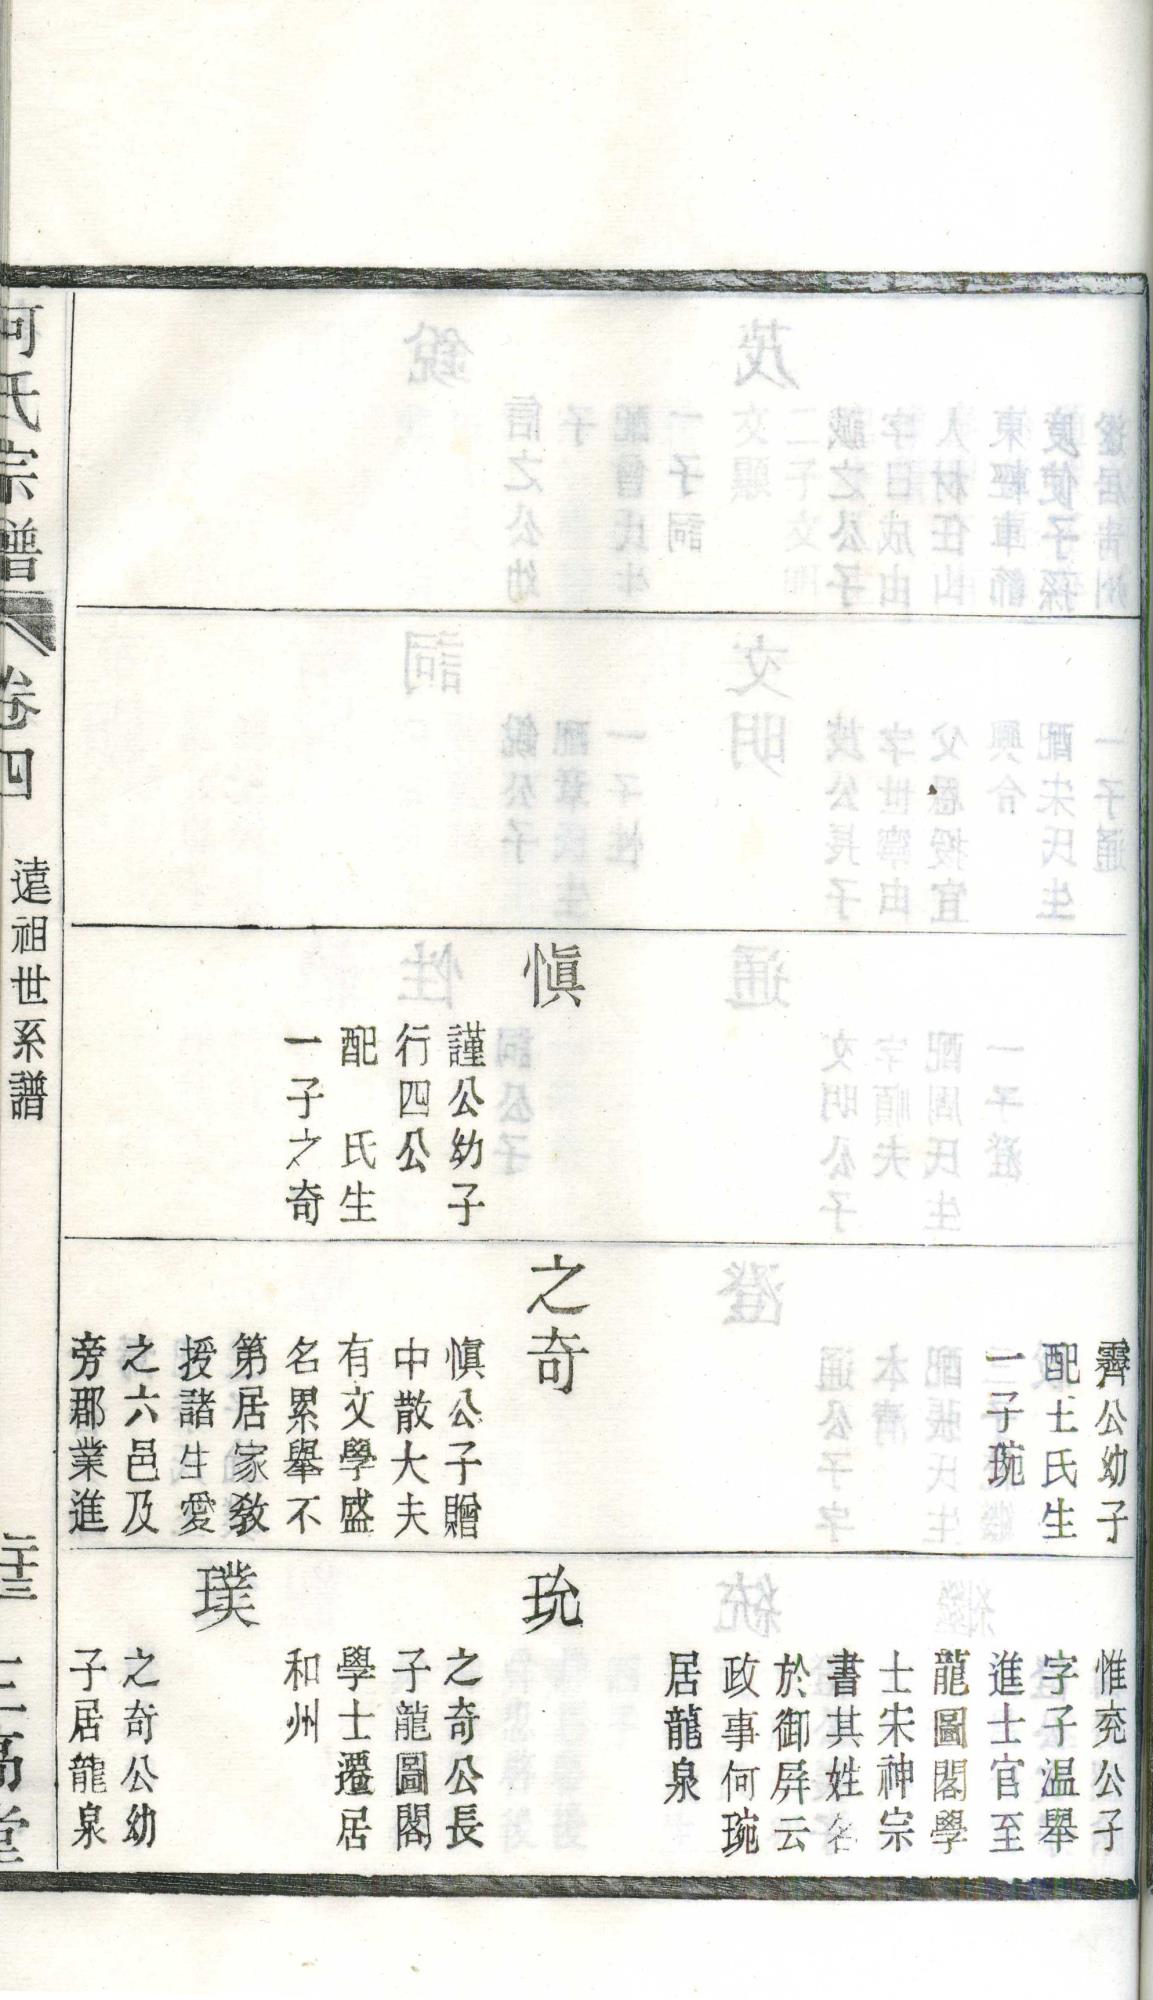 慎
謹公幼子
行四公
配　氏生
一子之奇
霽公幼子
配王氏生
一子琬
之奇
慎公子贈
中散大夫
有文學盛
名累舉不
第居家教
授諸生愛
之六邑及
旁郡業進
惟兖公子
字子温舉
進士官至
龍圖閣學
士宋神宗
書其姓名
於御屏云
政事何琬
居龍泉
玧
之奇公長
子龍圖閣
學士遷居
和州
璞
之奇公幼
子居龍泉
河氏宗譜
卷四
遠祖世系譜
二十三
三高堂